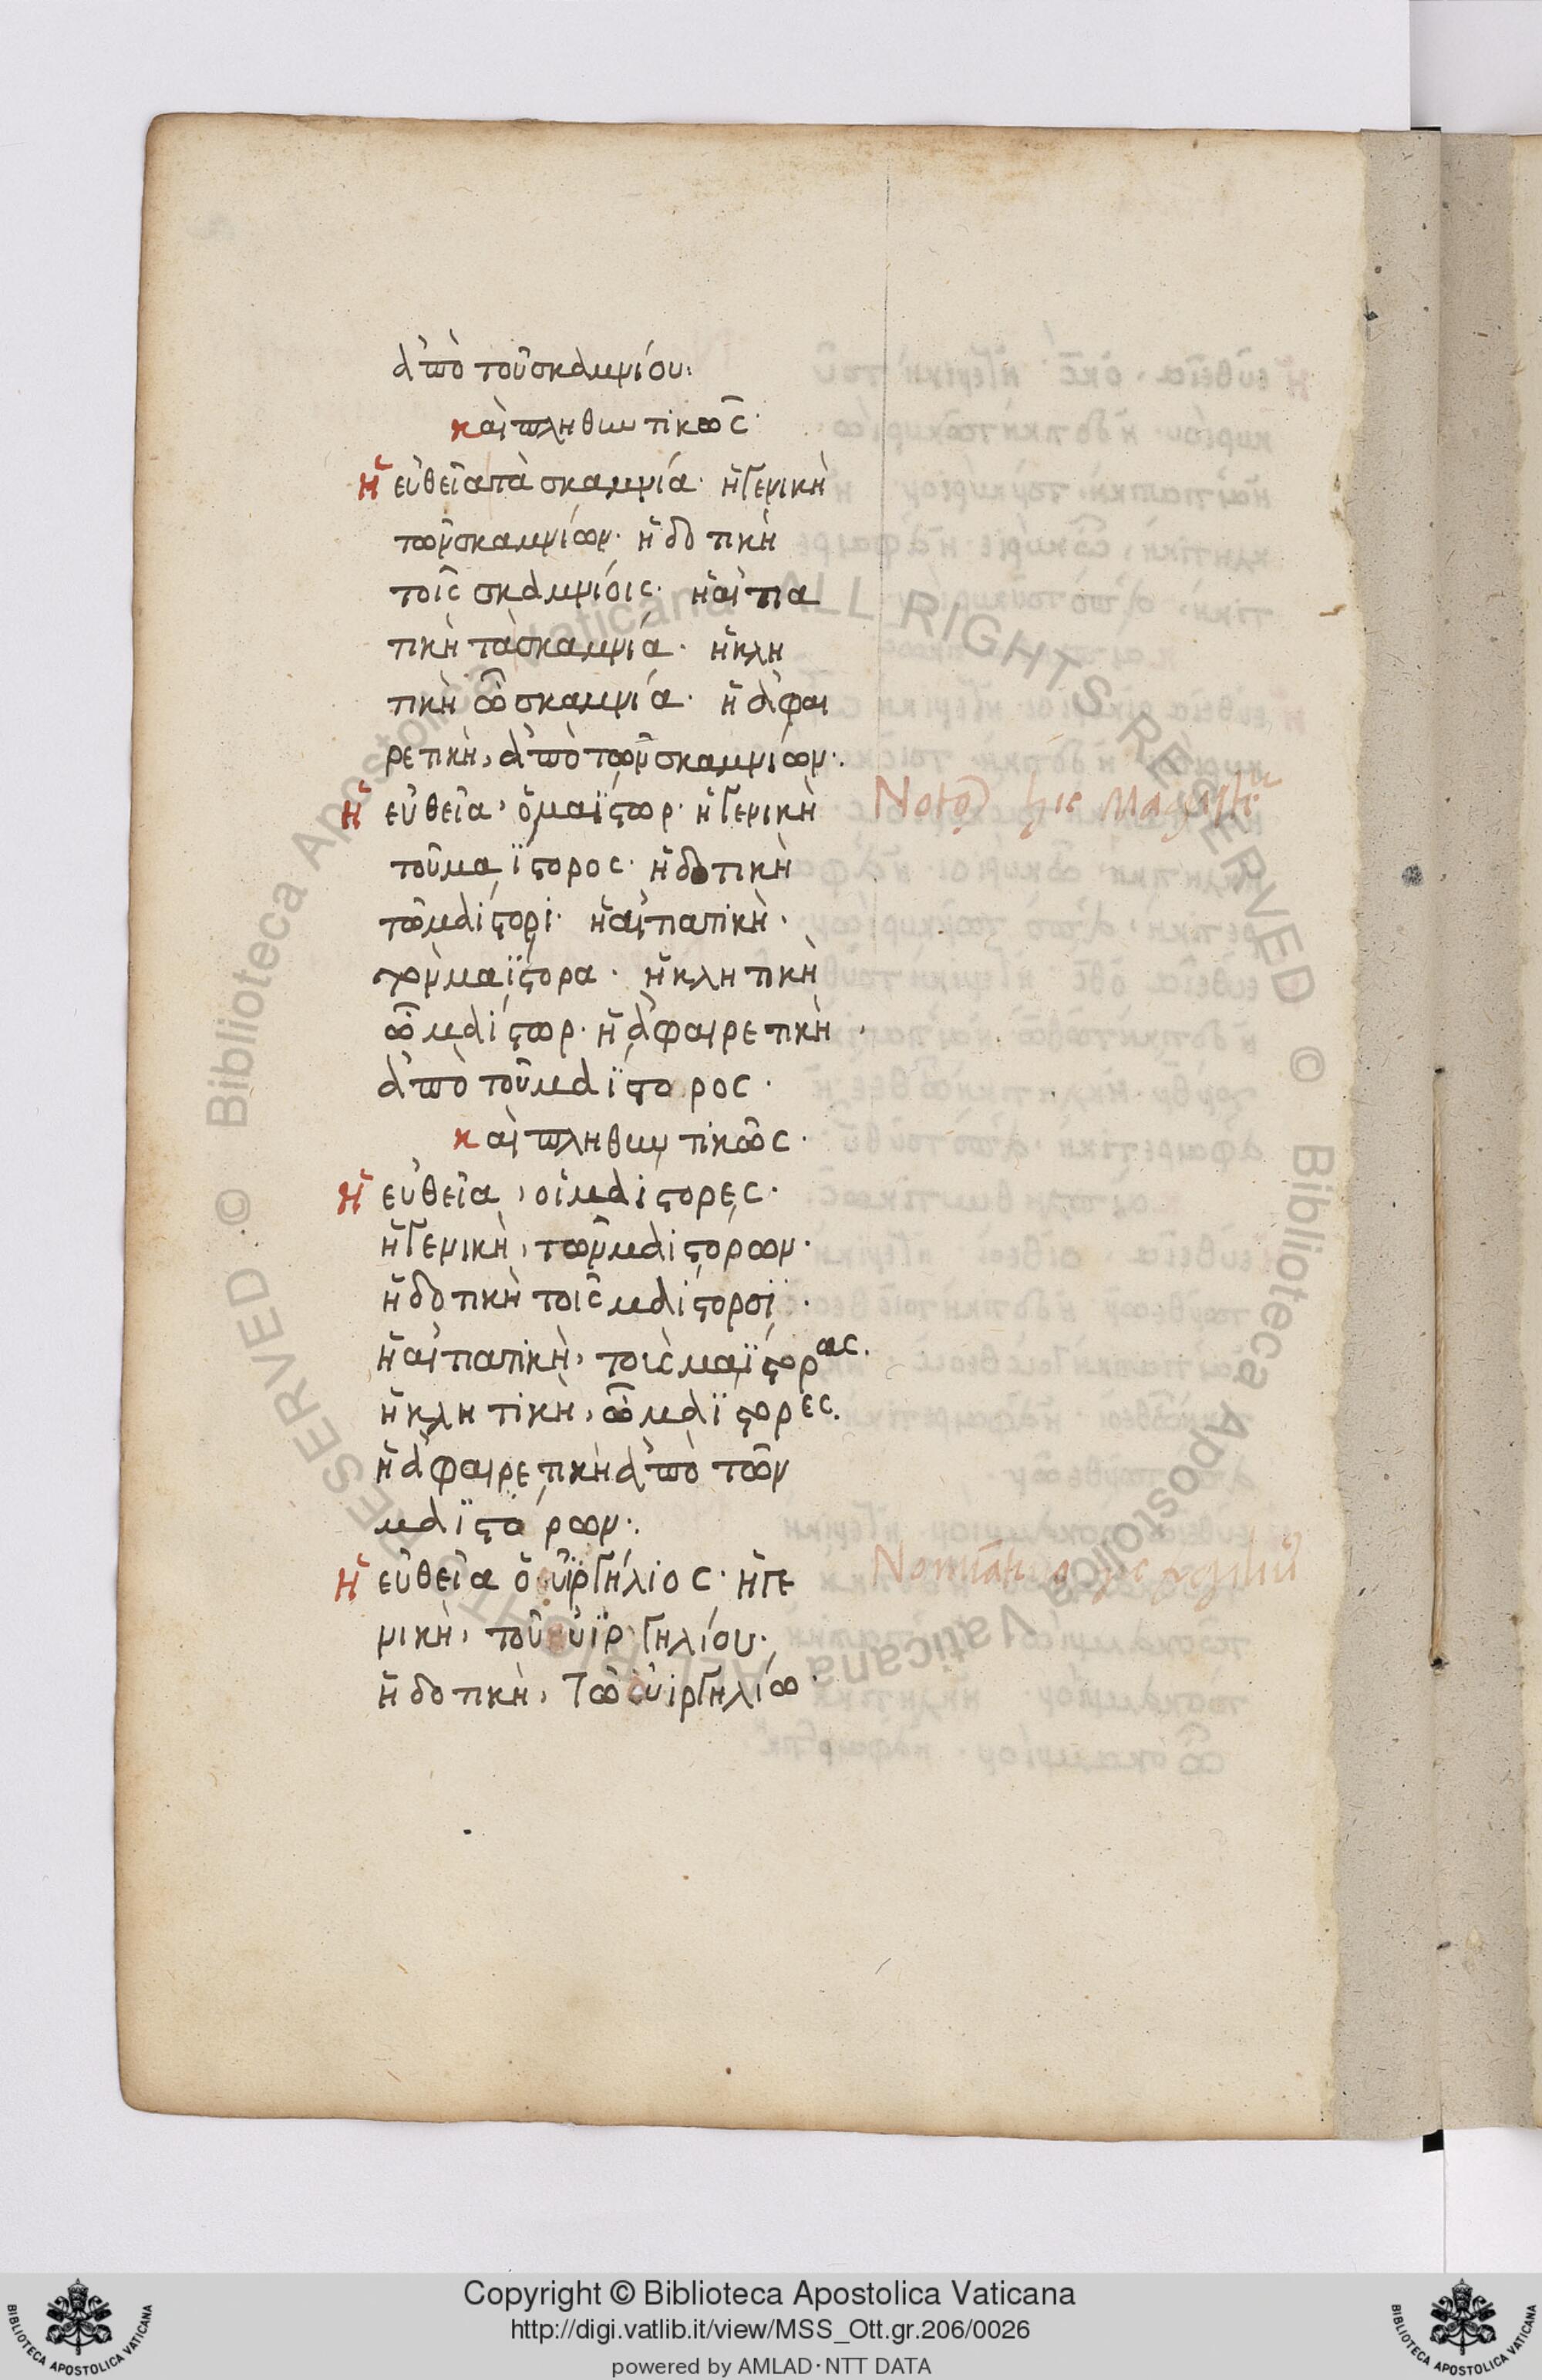 ἀπὸ τοῦ σκαμνίου:
καὶ πληθυντικῶς·
ἡ εὐθεῖα τὰ σκαμνία· ἡ γενικὴ
τῶν σκαμνίων· ἡ δοτικὴ
τοῖς σκαμνίοις· ἡ αἰτια
τικὴ τὰ σκαμνία· ἡ κλη
τικὴ ὦ σκαμνία· ἡ ἀφαι
ρετικὴ, ἀπὸ τῶν σκαμνίων:
ἡ εὐθεῖα, ὁ μαΐστωρ· ἡ γενικὴ
τοῦ μαΐστορος· ἡ δοτικὴ
τῶ μαίστορι· ἡ αἰτιατικὴ·
τὸν μαΐστορα· ἡ κλητικὴ
ὦ μαίστωρ· ἡ ἀφαιρετικὴ,
ἀπὸ τοῦ μαΐστορος·
καὶ πληθυντικῶς·
ἡ εὐθεῖα, οἱ μαίστορες·
ἡ γενικὴ, τῶν μαιστόρων·
ἡ δοτικὴ τοῖς μαίστορσϊ·
ἡ αἰτιατικὴ, τοὶς μαΐστορας.
ἡ κλητικὴ, ὦ μαΐστορες.
ἡ ἀφαιρετικὴ ἀπὸ τῶν
μαϊστόρων:
ἡ εὐθεῖα ὁ υἱργήλιος· ἡ γε
νικὴ, τοῦ υἱργηλίου·
ἡ δοτικὴ, τῶ υἱργηλίω·
hic
Copyright © Biblioteca Apostolica Vaticana
http://digi.vatlib.it/view/MSS_Ott.gr.206/0026
powered by AMLAD·NTT DATA
BIBLIOTECA APOSTOLICA VATICANA
BIBLIOTECA APOSTOLICA VATICANA
© Biblioteca Apostolica Vaticana ALL RIGHTS RESERVED
© Biblioteca Apostolica Vaticana ALL RIGHTS RESERVED